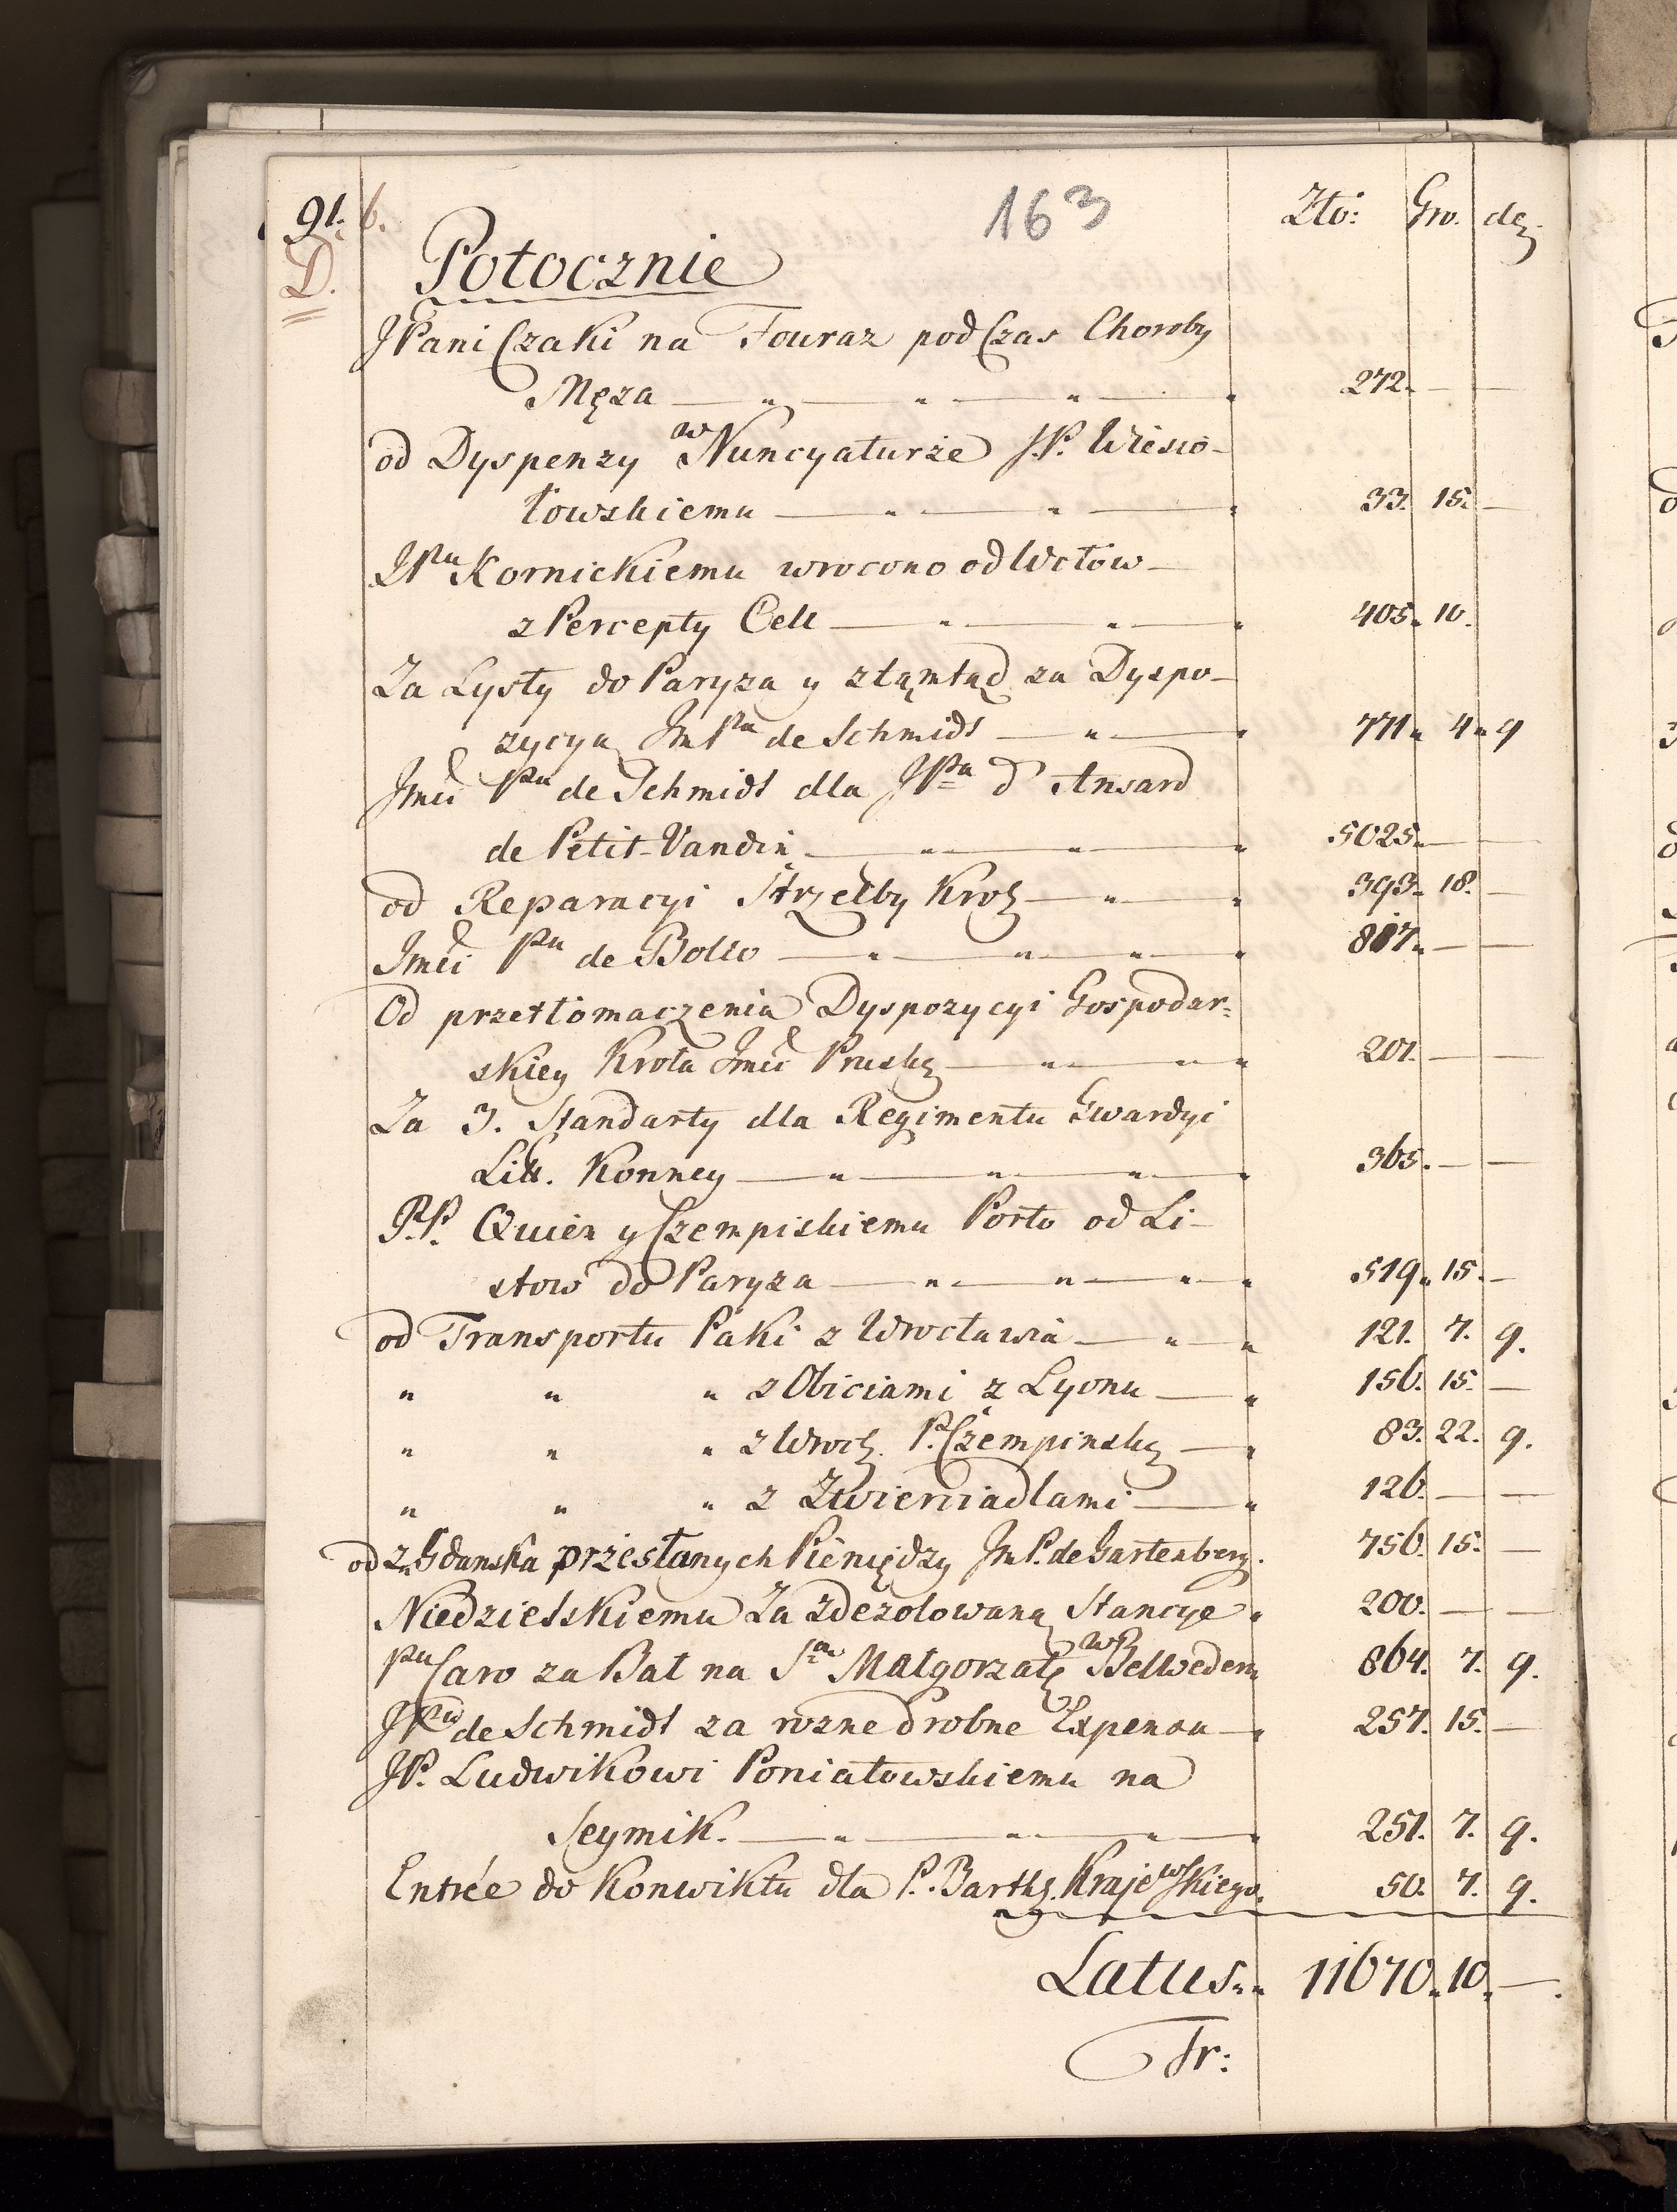 91. b. 163 Złó: Gro. dez
D. Potocznie
JPani Czaki na Fouraz pod Czas Choroby
Męza 272. — —
od Dyspenzy w Nuncyaturze J.P. Wiesio-
łowskiemu 33. 15. —
JPnu Kornickiemu wrocono od Wołow
z Percepty Cell 405. 10.
Za Lysty do Paryza y ztąmtąd za Dyspo-
zycyą ImPna de Schmidt 771. 4. 9
Jmći Pnu de Schmidt dla JPna d'Ansard
de Petit-Vandin 5025. — —
od Reparacyi Strzelby Krolz 393. 18. —
Jmći Pnu de Bollo 807. — —
Od przetłomaczenia Dyspozycyi Gospodar-
skiey Krola Jmći Pruskz 201. — —
Za 3. Standarty dla Regimentu Gwardyi
Litt. Konney 365. — —
P.P. Quien y Czempiskiemu Porto od Li-
stow do Paryza 519. 15. —
od Transportu Paki z Wrocławia 121. 7. 9.
" " " z Obiciami z Lyonu 156. 15. —
" " " z Wrocł. P. Czempinskz 83. 22. 9.
" " " z Zwierciadlami 126. — —
od z Gdanska przesłanych Pieniędzy JmP. de Gartenberg. 756. 15. —
Niedzielskiemu Za zdezolowaną Stancye 200. — —
Pnu Caro za Bal na Sta Małgorzatę w Bellweder 864. 7. 9.
JPnu de Schmidt za rozne drobne Expensa 257. 15. —
JP. Ludwikowi Poniatowskiemu na
Seymik. 251. 7. 9.
Entrée do Konwiktu dla P. Barthz. Krajewskiego. 50. 7. 9.
Latus.. 11670. 10. —
Tr: